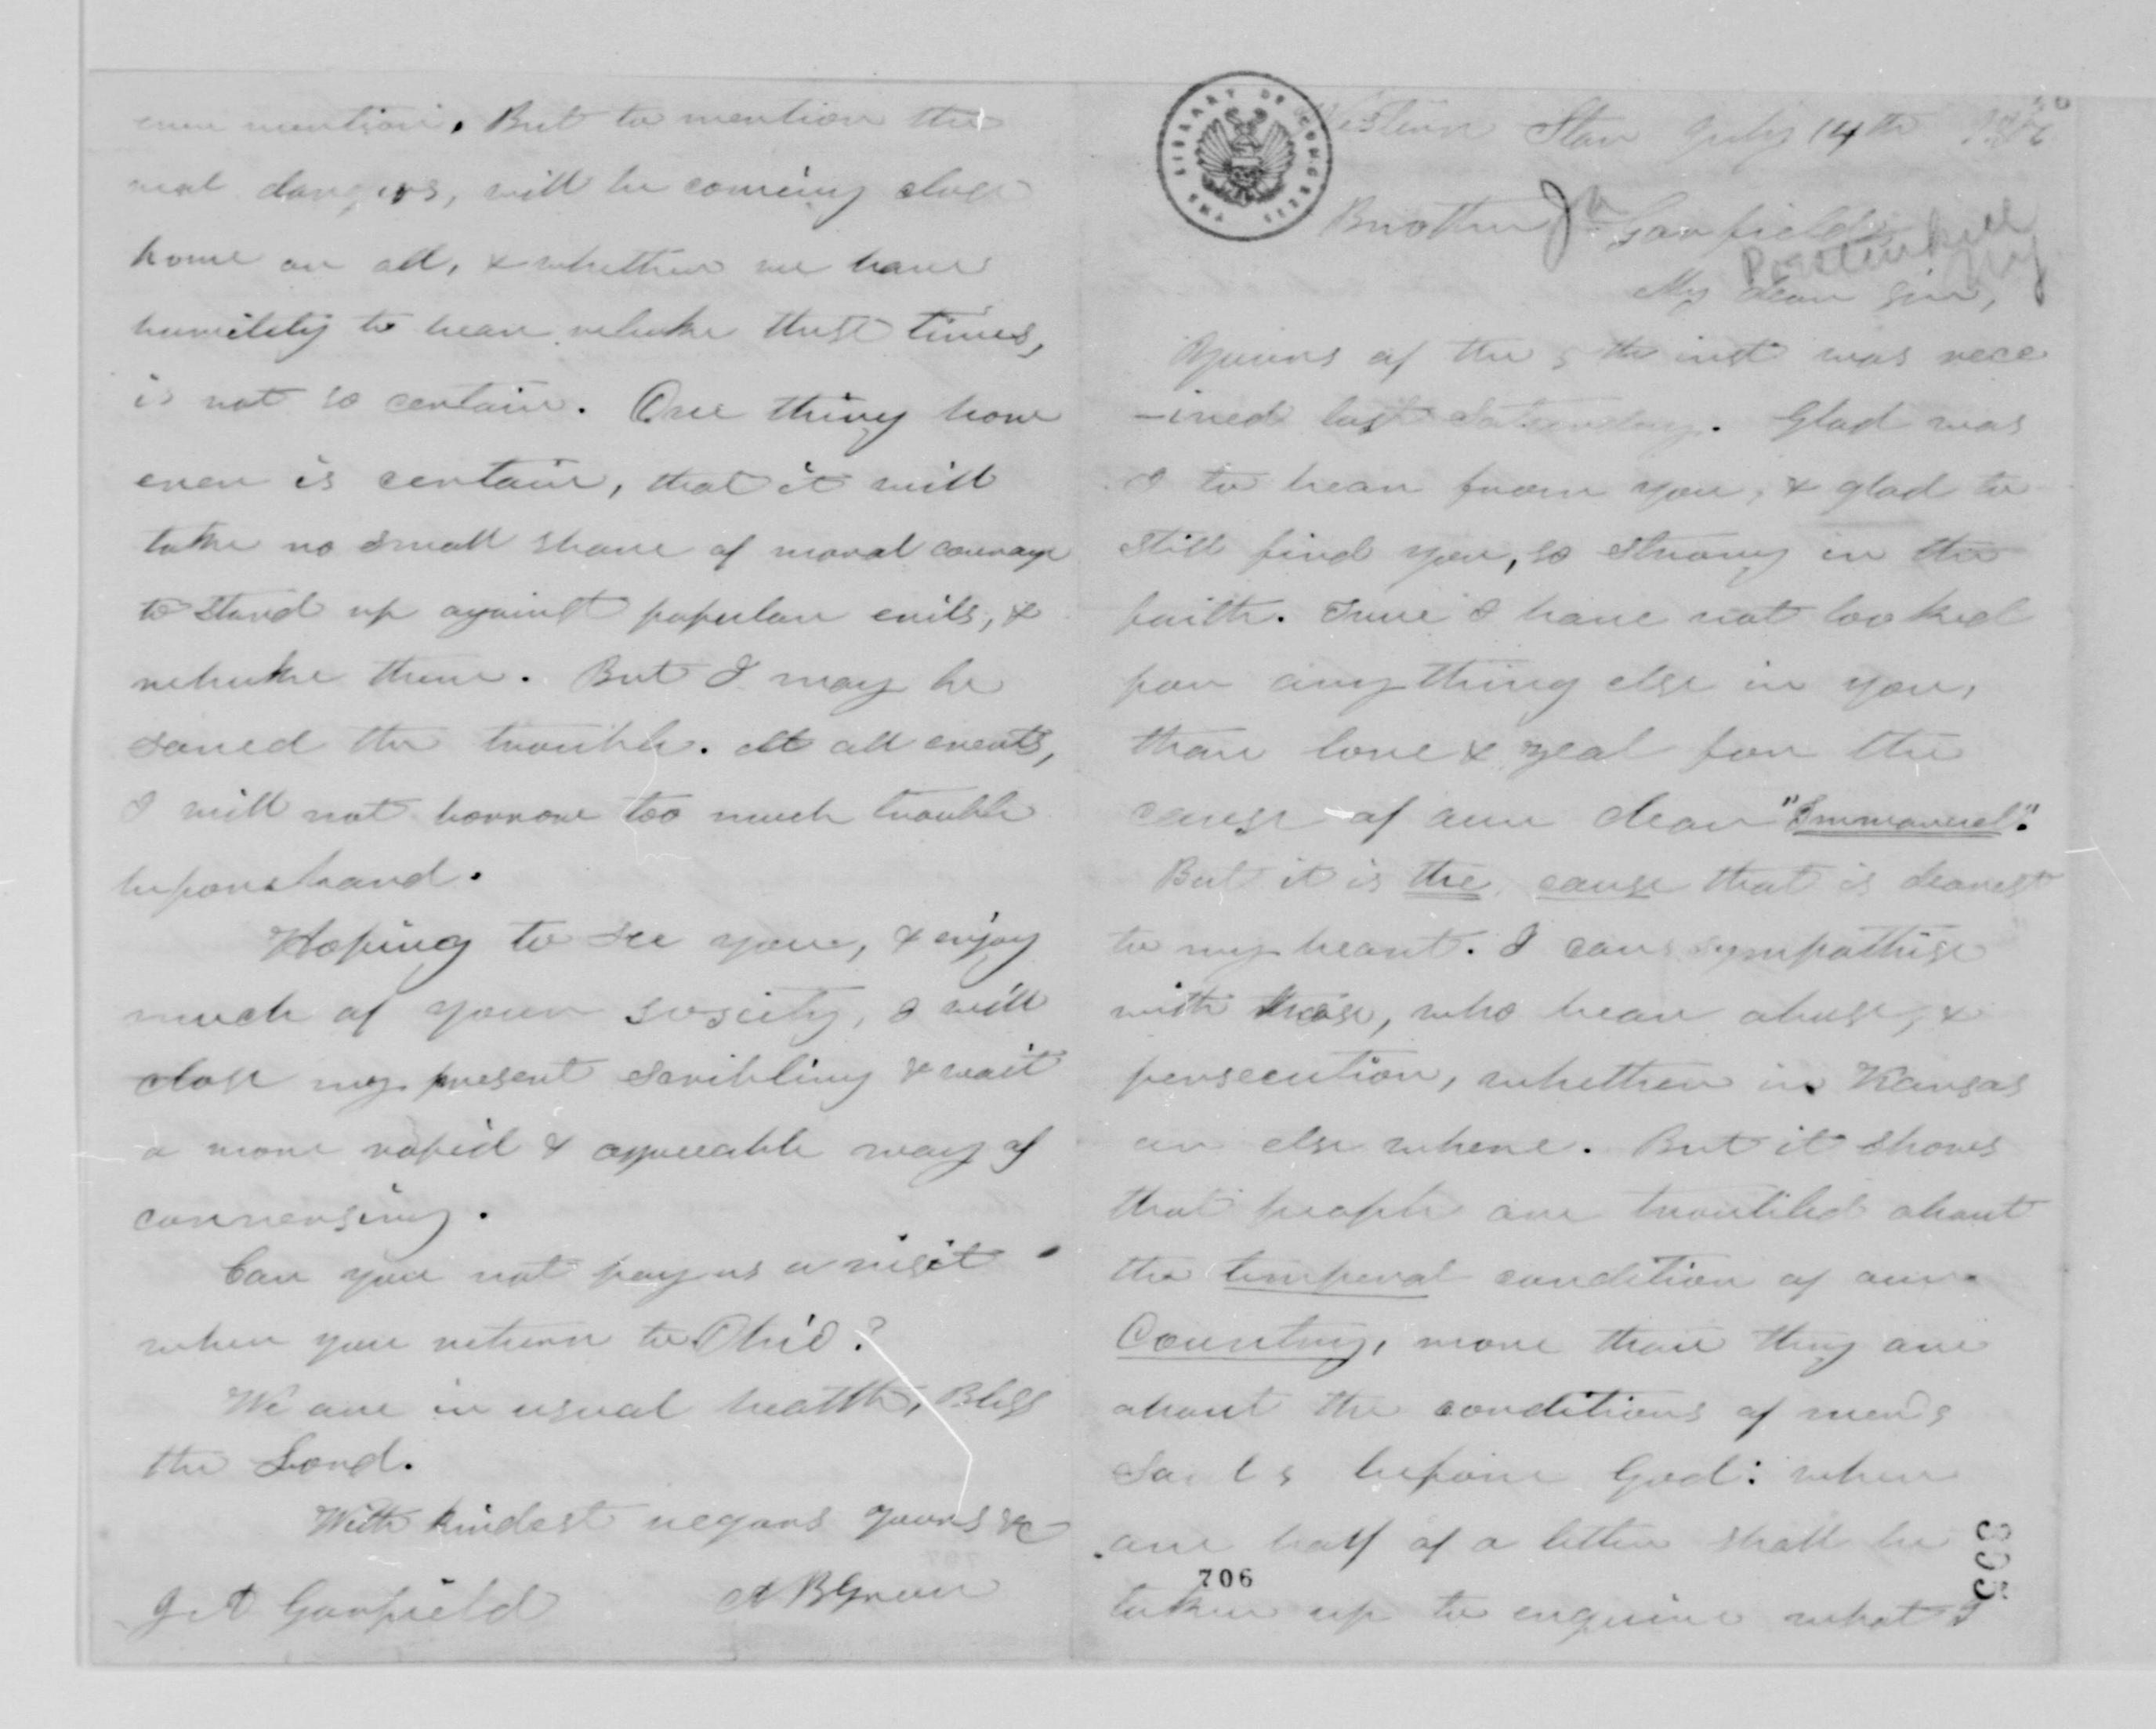 even mention. But to mention the
real dangers, will be coming close
home on all, & whether we have
humility to bear rebuke these times,
is not so certain. One thing how
ever is certain, that it will
take no small share of moral courage
to stand up against popular evils, &
rebuke them. But I may be
saved the trouble. At all events,
I will not borrow too much trouble
beforehand.
Hoping to see you, & enjoy
much of your sosciety, I will
close my present scribling & wait
a more rapid & agreeable way of
conversing.
Can you not pay us a visit
when you return to Ohio?
We are in usual health, Bless
the Lord.
With kindest regars yours &c
J A Garfield A B Green
THE LIBRARY OF CONGRESS
Western Star July 14th
Brother Ja Garfield
Poestenkill
NY
My dear sir,
Yours of the 5th inst was rece
-ived last Saturday. Glad was
I to hear from you, & glad to
still find you, so strong in the
faith. True I have not looked
for any thing else in you,
than love & zeal for the
cause of our dear "Immanuel".
But it is the cause that is dearest
to my heart. I can sympathise
with those, who bear abuse, &
persecution, whether in Kansas
or else where. But it shows
that people are troubled about
the temperal condition of our
Country, more than they are
about the conditions of men's
Souls before God: when
one half of a letter shall be
taken up to enquire what I
706
395